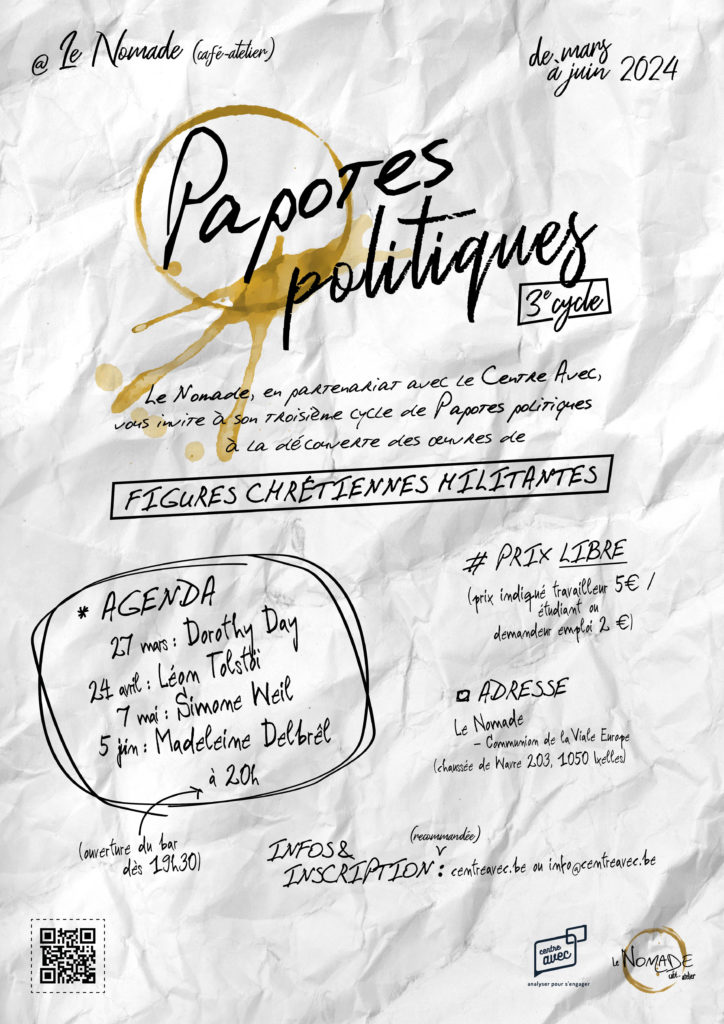 @ Le Nomade (café-atelier)
de mars
à juin 2024
Papotes
politiques
3e cycle
Le Nomade, en partenariat avec le Centre Avec,
vous invite à son troisième cycle de Papotes politiques
à la découverte des œuvres de
FIGURES CHRÉTIENNES MILITANTES
* AGENDA
27 mars : Dorothy Day
24 avril : Léon Tolstoï
7 mai : Simone Weil
5 juin : Madeleine Delbrêl
à 20h
(ouverture du bar
dès 19h30)
# PRIX LIBRE
(prix indiqué travailleur 5€ /
étudiant ou
demandeur emploi 2 €)
ADRESSE
Le Nomade
– Communion de la Viale Europe
(chaussée de Wavre 203, 1050 Ixelles)
(recommandée)
INFOS &
INSCRIPTION : centreavec.be ou info@centreavec.be
centre
avec
analyser pour s'engager
Le NOMADE
café-atelier